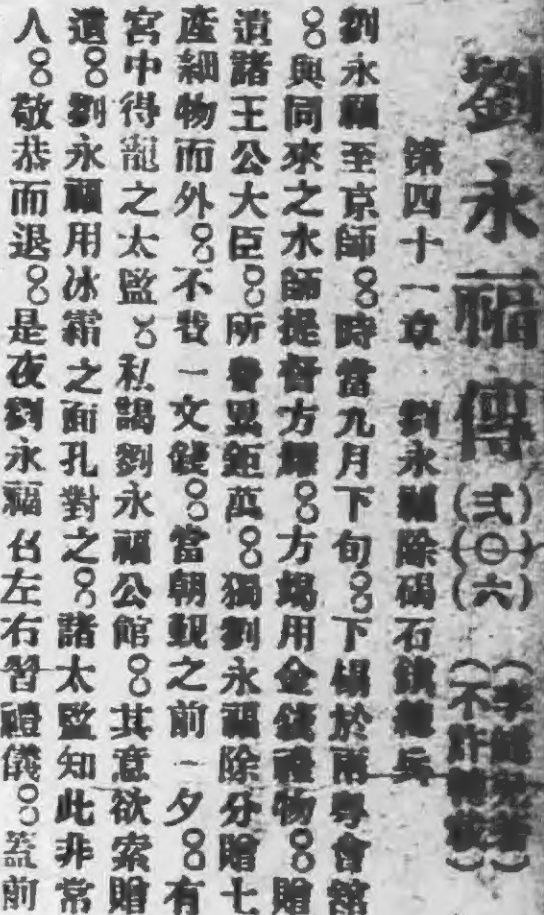 劉永福傳（弍〇六）
（不許轉載）
第四十一章　劉永福除碣石鎮總兵
劉永福至京師。時當九月下旬。下榻於兩粤會舘
。與同來之水師提督方耀。方竭用金錢禮物。贈
遺諸王公大臣。所費累鉅萬。獨劉永福除分贈土
產細物而外。不費一文錢。當朝覲之前一夕。有
宮中得寵之太監。私謁劉永福公館。其意欲索贈
遺。劉永福用冰霜之面孔對之。諸太監知此非常
人。敬恭而退。是夜劉永福召左右習禮儀。蓋前